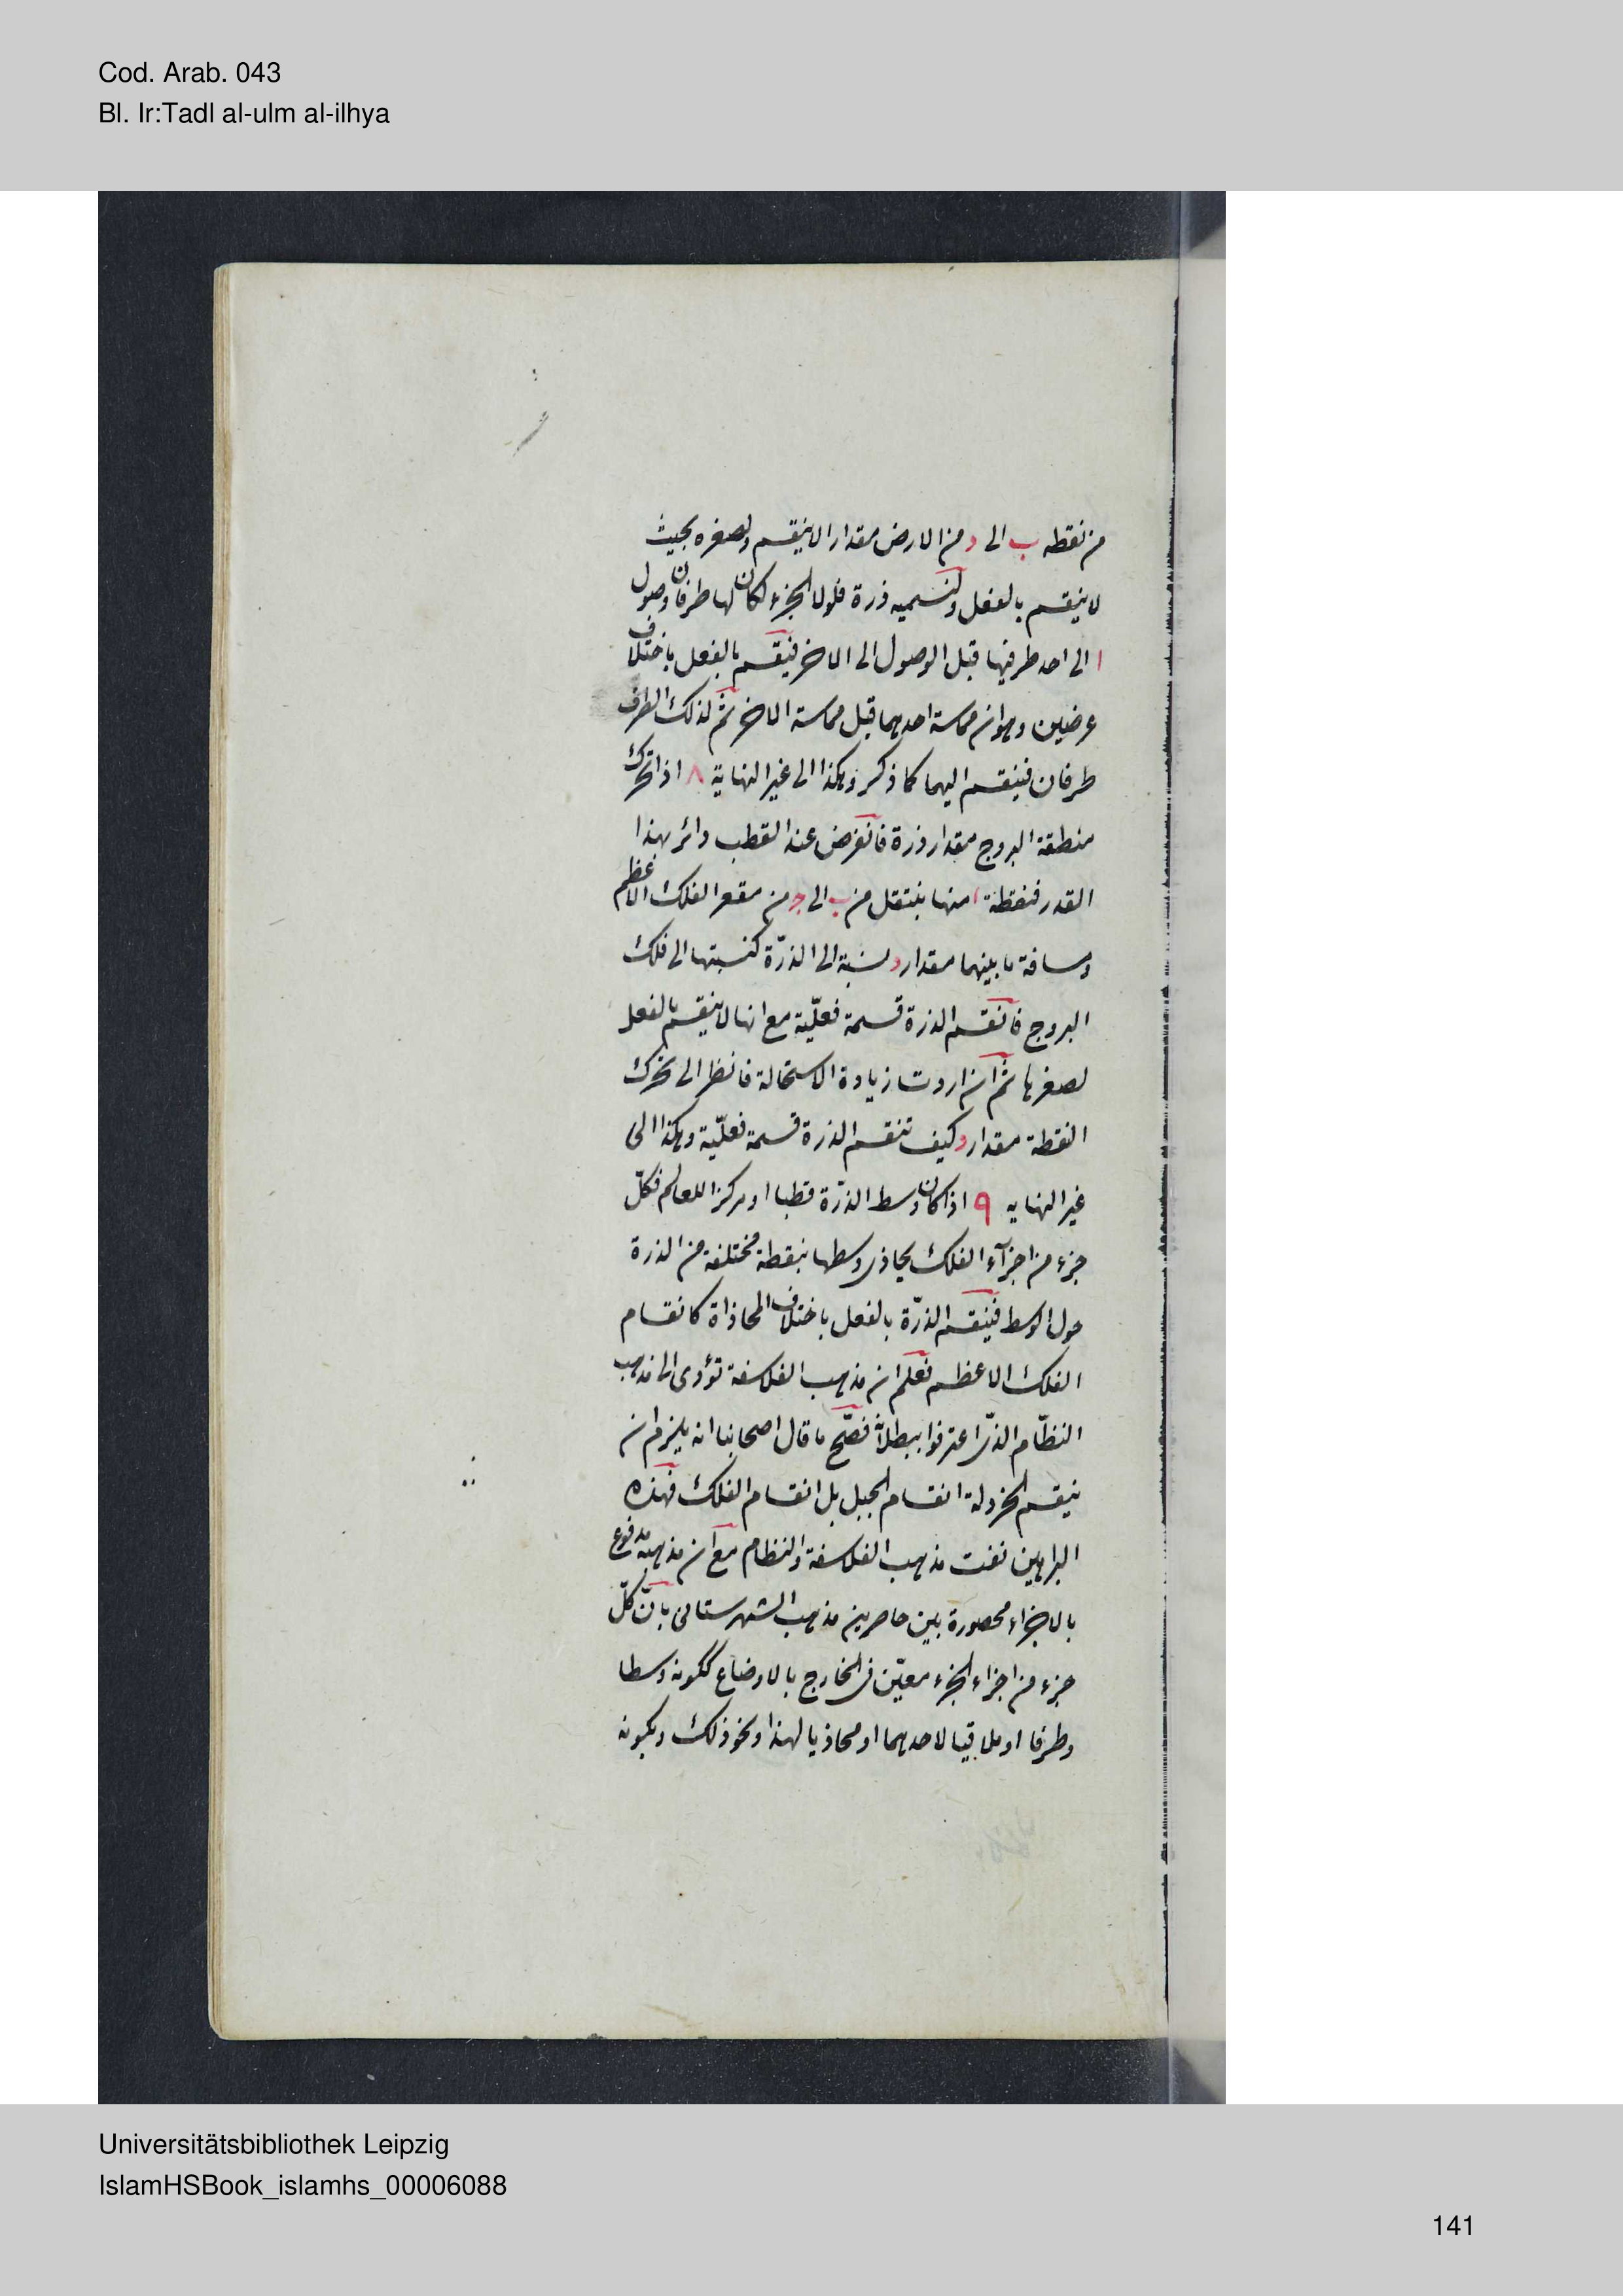 Cod. Arab. 043
Bl. Ir:Tadl al-ulm al-ilhya
من نقطه ب الى د من الارض مقدارا لا ينقسم ولصغره بحيث
لا ينقسم بالفعل ولنسميه ذرة فلولا الجزء لكان لها طرفان وصول
ا الى احد طرفيها قبل الوصول الى الاخر فينقسم بالفعل باختلاف
عرضين وهو ان مماسة احدهما قبل مماسة الاخر ثم لذلك الطرف
طرفان فينقسم اليهما كما ذكر وهكذا الى غير النهاية ٨ اذا تحرك
منطقة البروج مقدار ذرة فانفرض عند القطب دائر بهذا
القدر فنقطة ا منها ينتقل من ب الى ج من مقعر الفلك الاعظم
ومسافة ما بينهما مقدار د نسبة الى الذرّة كنسبتها الى فلك
البروج فانقسم الذرة قسمة فعليّة مع انها لا ينقسم بالفعل
لصغرها ثم ان اردت زيادة الاستحالة فانظر الى تحرك
النقطة مقدار د كيف تنقسم الذرة قسمة فعليّة وهكذا الى
غير النهايه ٩ اذا كان وسط الذرّة قطبا او مركزا للعالم فكلّ
جزء من اجزآء الفلك يحاذى وسطها بنقطة مختلفة من الذرة
حول الوسط فينقسم الذرّة بالفعل باختلاف المحاذاة كانقسام
الفلك الاعظم فعلم ان مذهب الفلاسفة تؤدى الى مذهب
النظّام الذى اعترفوا ببطلانه فصّح ما قال اصحابنا انه يلزم ان
ينقسم الخردلة انقسام الجبل بل انقسام الفلك فهذه
البراهين نفت مذهب الفلاسفة والنظام مع ان مذهبه مدفوع
بالاجزاء محصورة بين حاصرين مذهب الشهرستانى بانّ كلّ
جزء من اجزاء الجزء معيّن فى الخارج بالاوضاع ككونه وسطا
وطرفا او ملاقيا لاحدهما او محاذيا لهذا ونحو ذلك وبكونه
Universitätsbibliothek Leipzig
IslamHSBook_islamhs_00006088
141